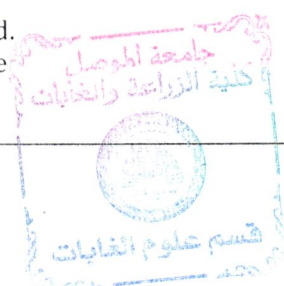 d.
e
جامعة الموصل
كلية الزراعة والغابات
قسم علوم الغابات